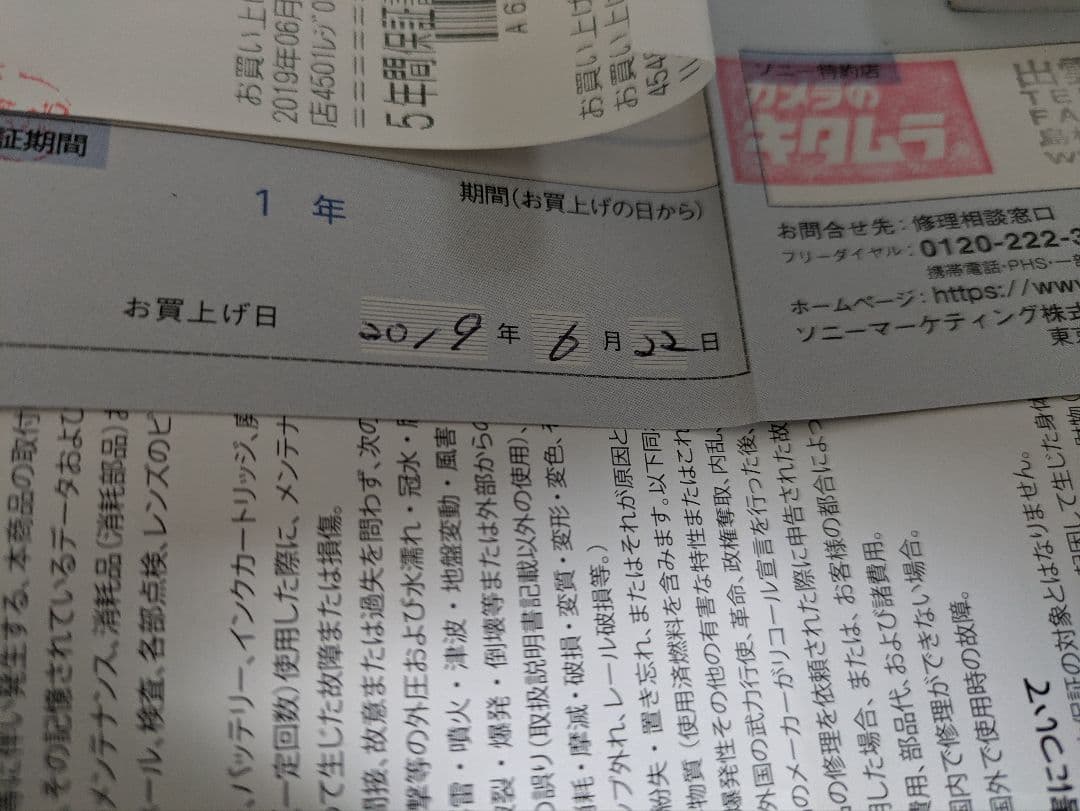 お買い上げ
2019年06月
店4501レジ0
5年間保証
A6
お買い上げ
お買い上
454
ソニー特約店
カメラの
キタムラ
証期間
1 年
期間(お買上げの日から)
お買上げ日
2019 年 6 月 22 日
お問合せ先:修理相談窓口
フリーダイヤル:0120-222-3
携帯電話・PHS・一部
ホームページ:https://www
ソニーマーケティング株式
東京
保証の対象とはなりません。
について
国外で使用時の故障。
国内で修理ができない場合。
費用、部品代、および諸費用。
用した場合、または、お客様の都合によっ
の修理を依頼された際に申告された故
のメーカーがリコール宣言を行った後、
外国の武力行使、革命、政権奪取、内乱、
爆発性その他の有害な特性またはこれ
物質(使用済燃料を含みます。以下同
紛失・置き忘れ、またはそれが原因と
プ外れ、レール破損等。)
消耗・摩滅・破損・変質・変形・変色、
の誤り(取扱説明書記載以外の使用)、
破裂・爆発・倒壊等または外部からの
雷・噴火・津波・地盤変動・風害
撃等の外圧および水濡れ・冠水・
間接、故意または過失を問わず、次の
って生じた故障または損傷。
一定回数)使用した際に、メンテナ
、バッテリー、インクカートリッジ、
ール、検査、各部点検、レンズのピ
メンテナンス、消耗品(消耗部品)
、その記憶されているデータおよび
に伴い発生する、本商品の取付